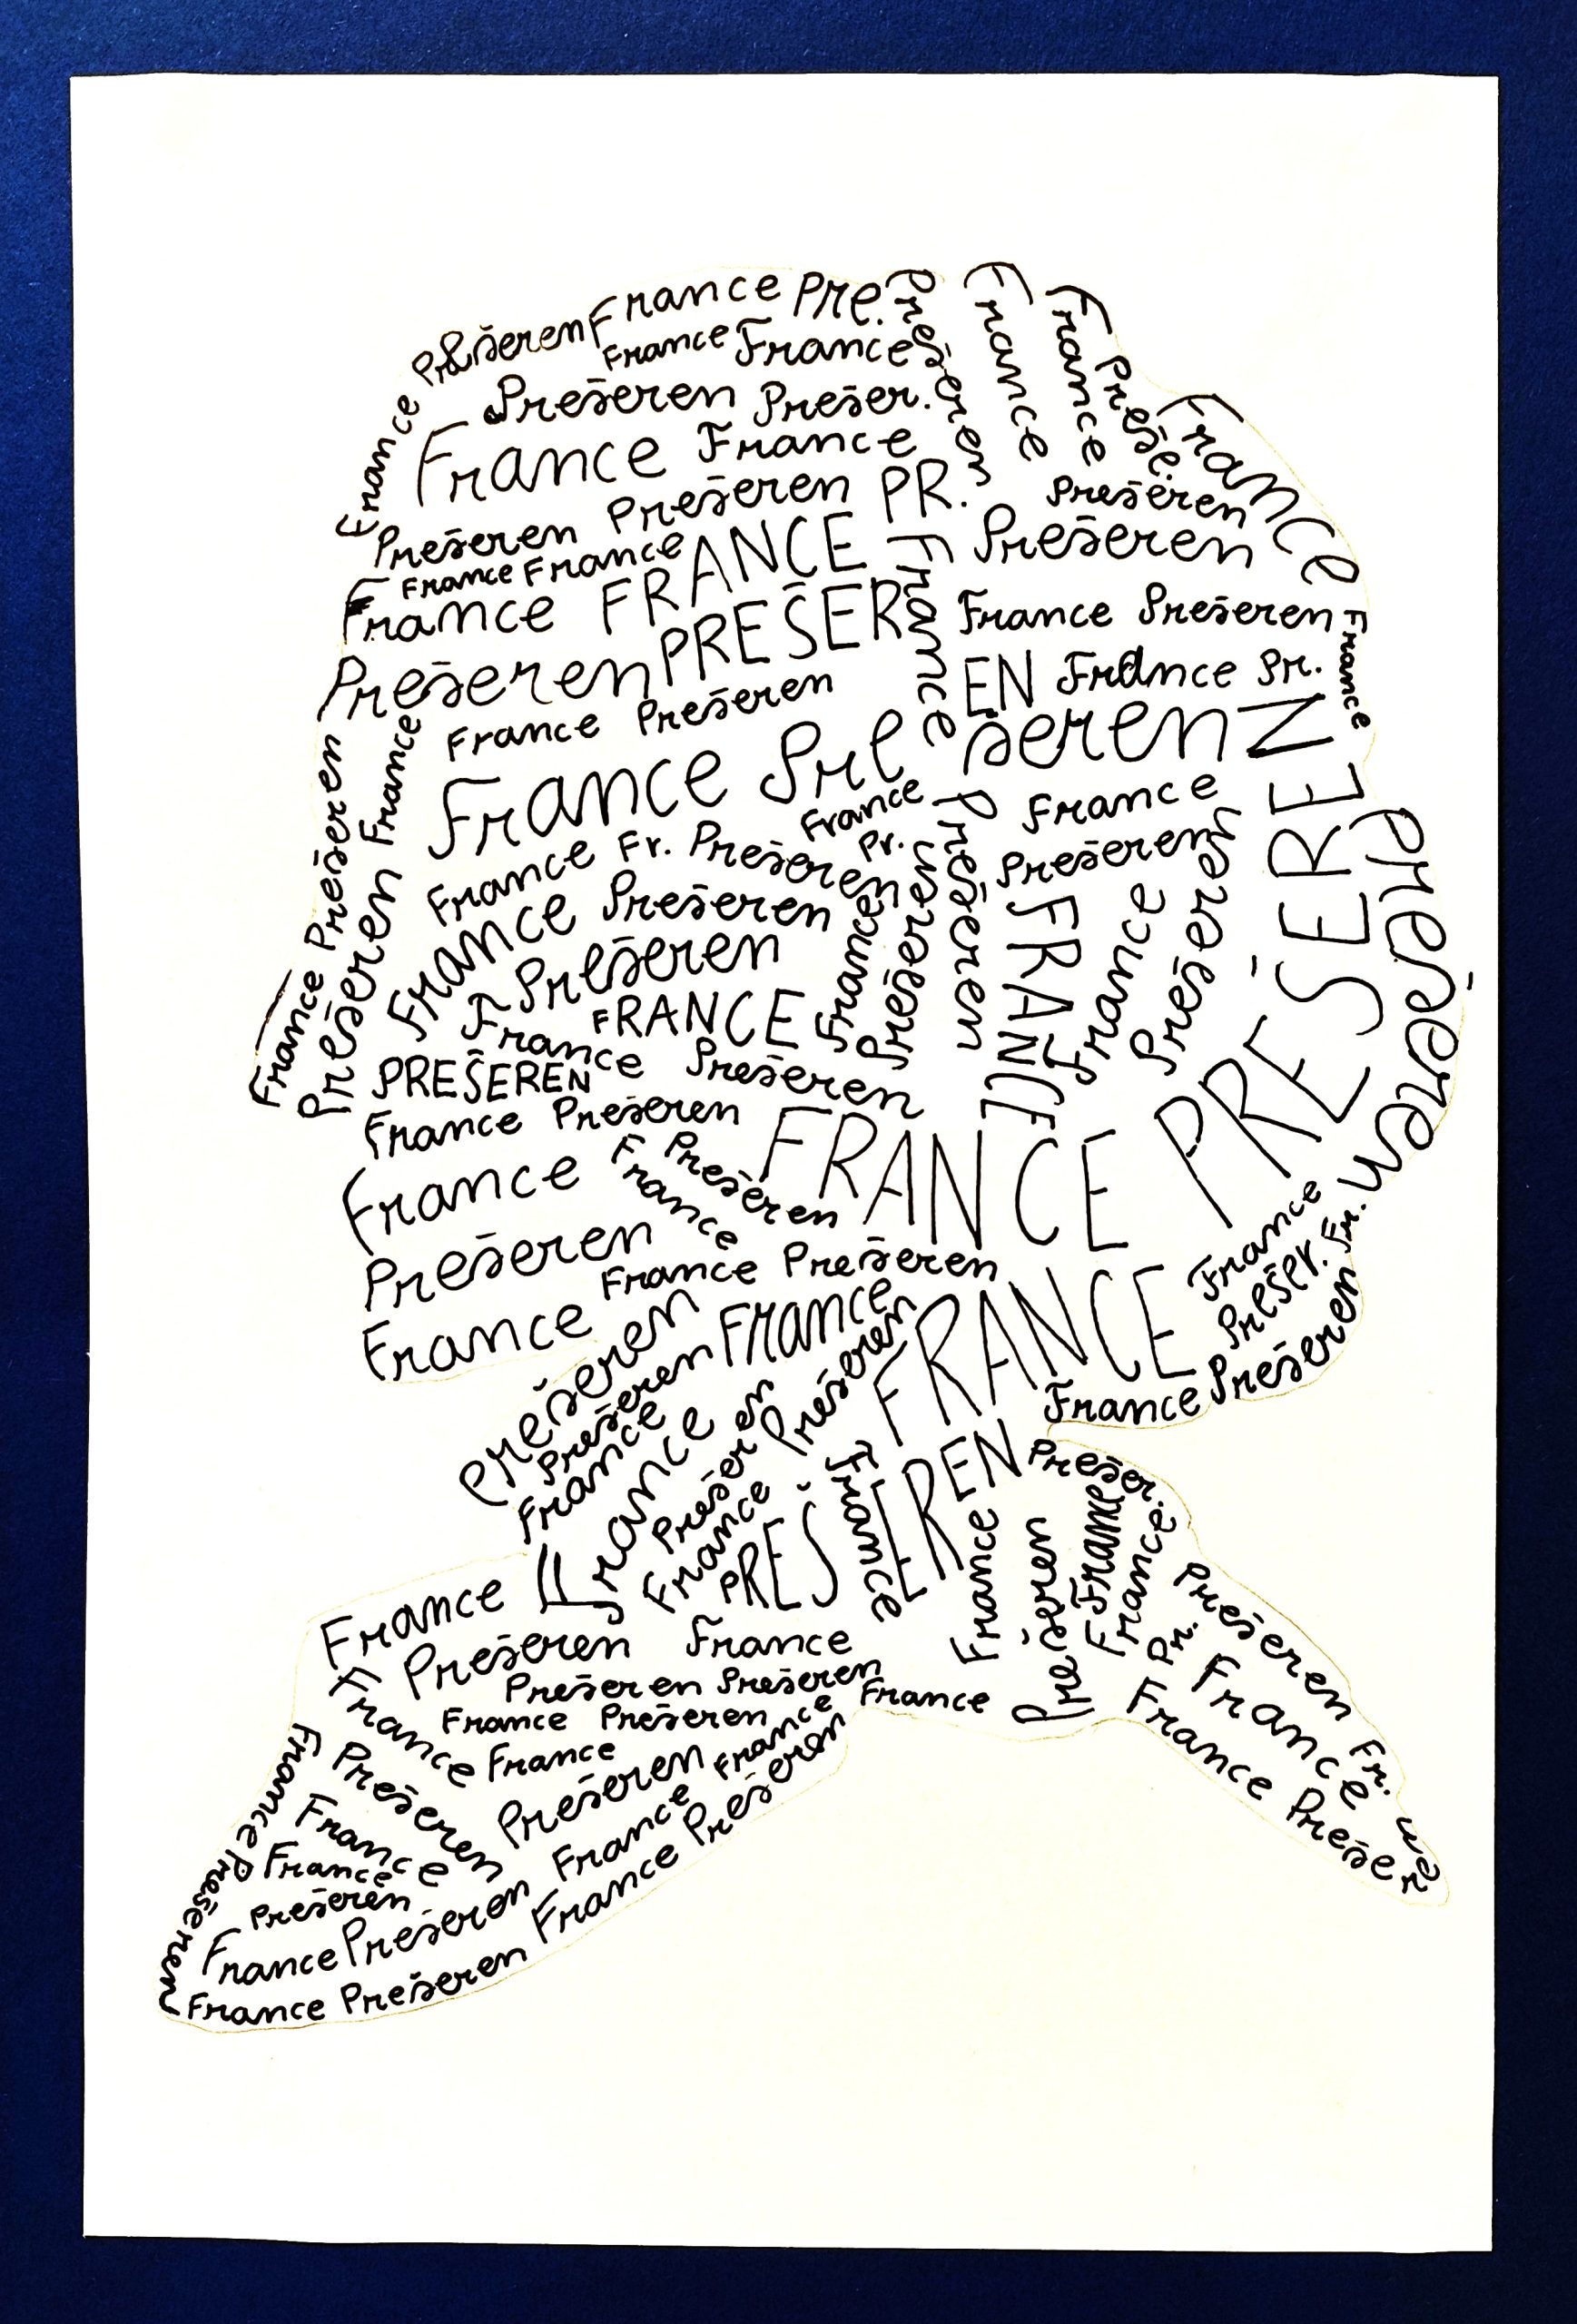 Prešeren France Pre.
France France
Prešeren
France
France
Preše.
France
France
Prešeren Prešer.
France France
Prešeren Prešeren PR.
Prešeren
France France
France FRANCE
France
Prešeren
France
Prešeren PREŠER EN
France Prešeren
France
France Pr.
France Prešeren
France Pre šeren
Prešeren
France
France
Pr.
France Fr. Prešeren
France
Prešeren
Prešeren
FRANCE Prešeren
Prešeren
France
Prešeren
France
Prešeren
FRANCE
France
Prešeren
France Prešeren
Prešeren
FRANCE
France
Prešeren
PREŠEREN
France Prešeren
FRANCE PREŠEREN
Prešeren
France
Prešeren
France
Prešeren
France Prešeren
France
France
Prešer. Fr.
France Prešeren
Prešeren
Prešeren FRANCE
France
Prešeren
France
Prešeren
France
FRANCE
PREŠEREN
France
Prešer.
France
Prešeren
France
France
Pr.
Prešeren Fr.
France
France Prešer
France
Prešeren France
Prešeren Prešeren
France Prešeren France
France
France
France
Prešeren
Prešeren
France Prešeren
France
France
Prešeren
France Prešeren France
France Prešeren France Prešeren